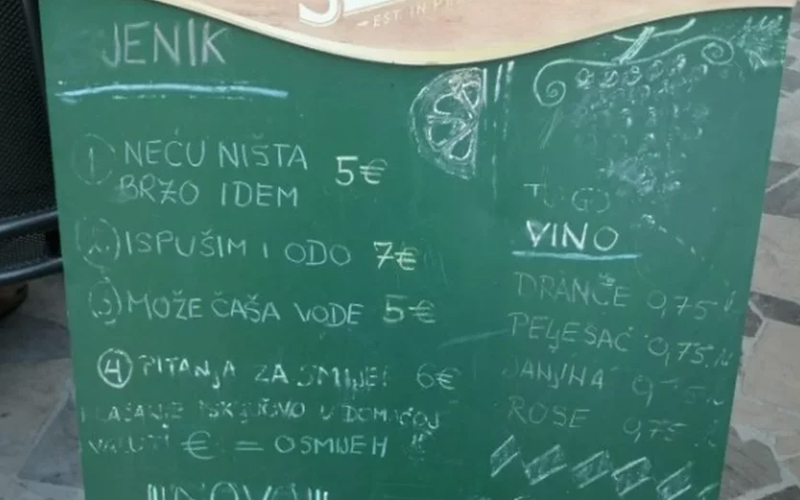 EST. IN
JENIK
1. NEĆU NIŠTA
BRZO IDEM 5€
2. ISPUŠIM I ODO 7€
3. MOŽE ČAŠA VODE 5€
4 PITANJA ZA SMIJEH 6€
PLAĆANJE ISKLJUČIVO U DOMAĆOJ
VALUTI € = OSMIJEH
!!!NOVO!!!
TO GO
VINO
DRANČE 0,75
PELJEŠAC 0,75
ROSE 0,75